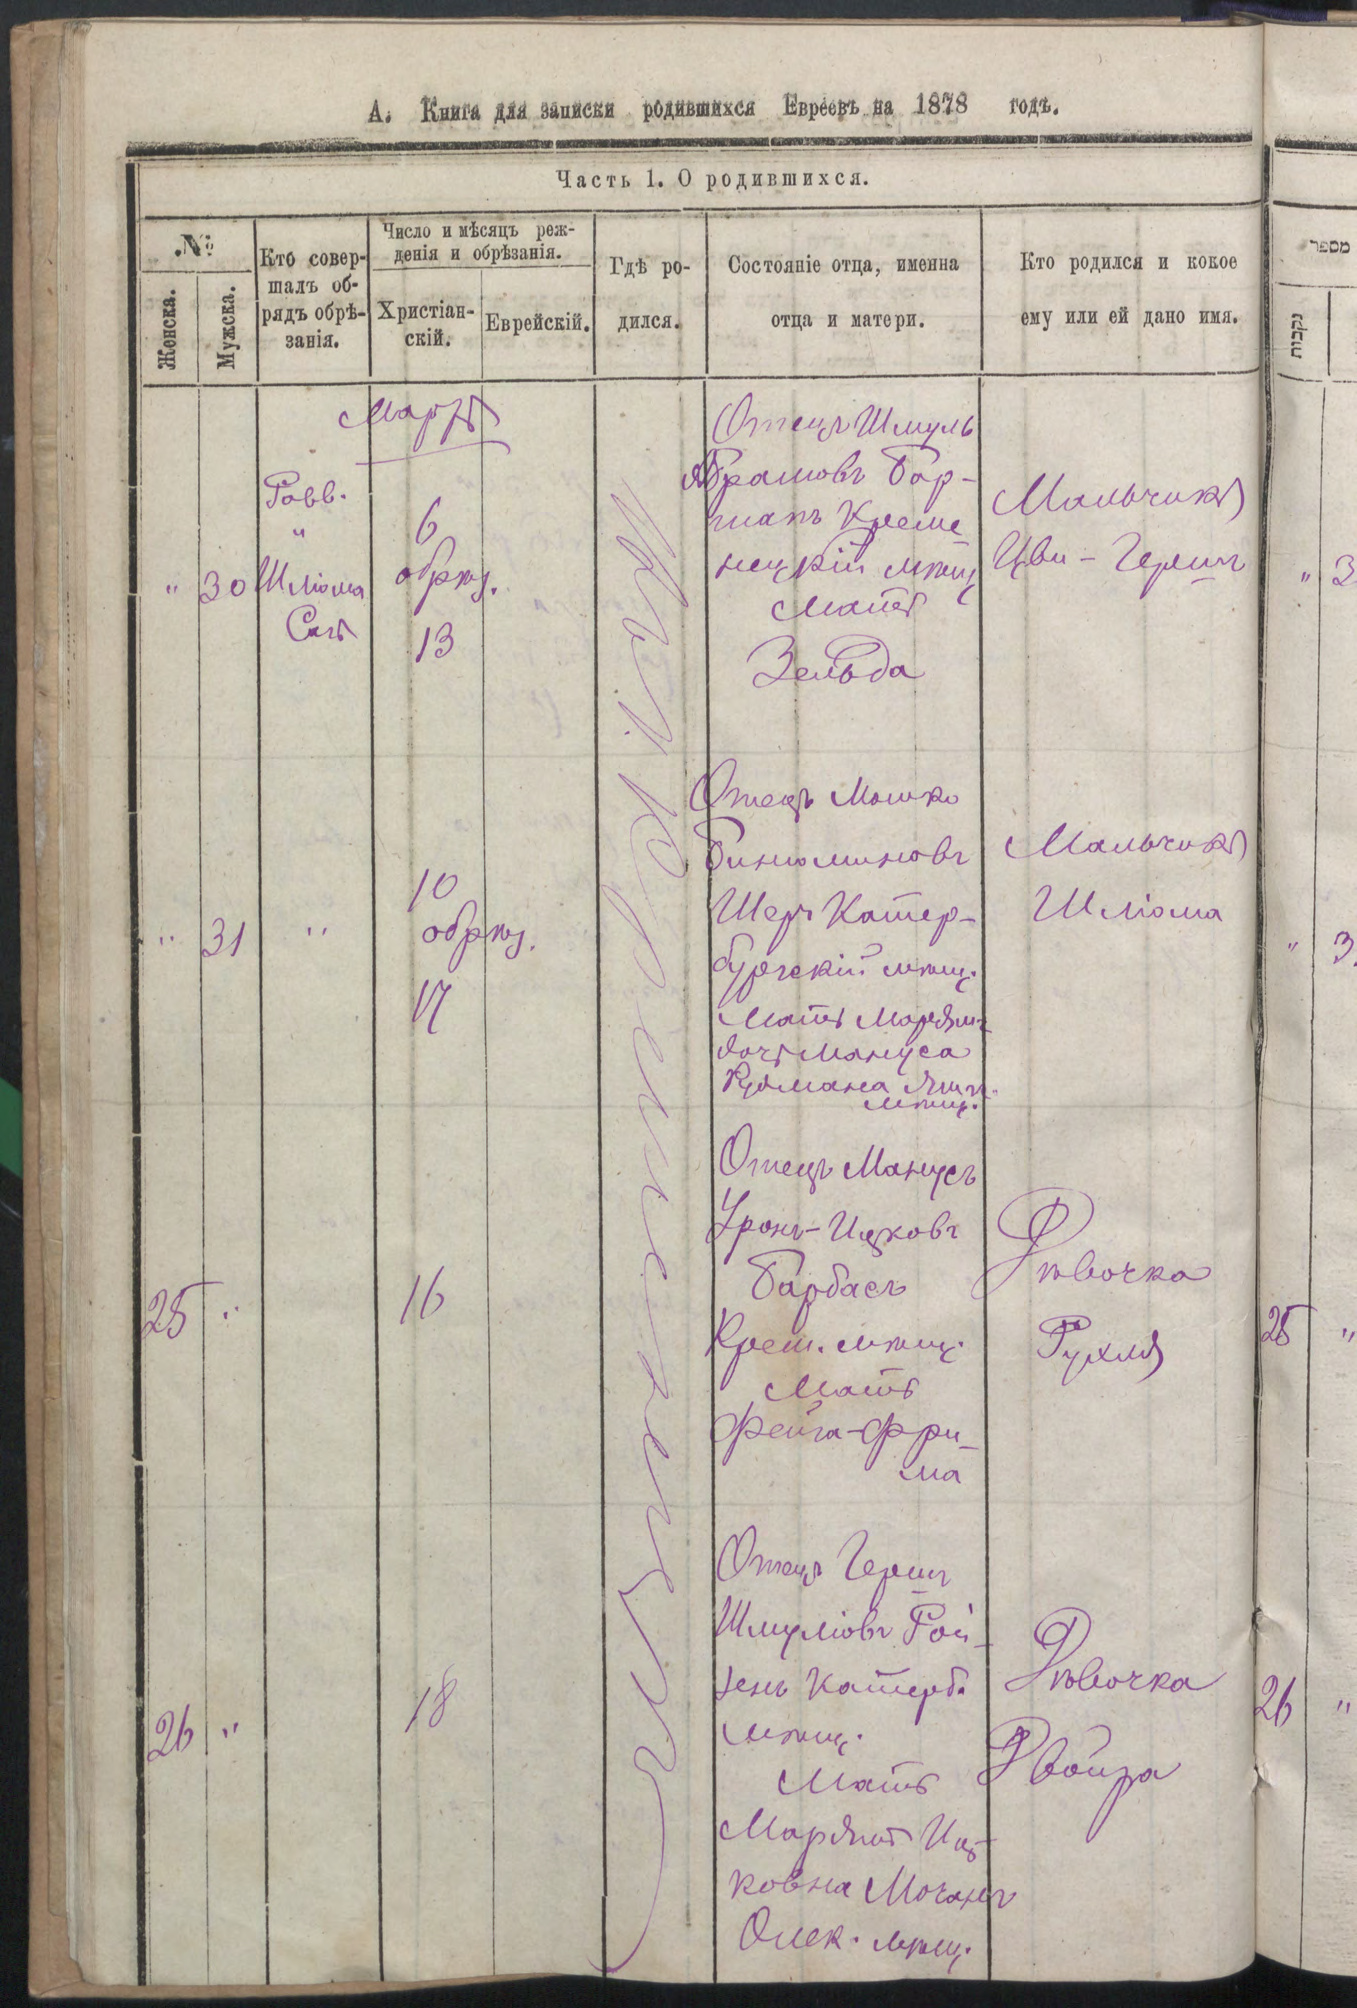 А. Книга для записки родившихся Евреевъ на 1878 годъ.
Часть 1. О родившихся.
№
Женска.
Мужска.
Кто совер-
шалъ об-
рядъ обрѣ-
занія.
Число и мѣсяцъ реж-
денія и обрѣзанія.
Христіан-
скій.
Еврейскій.
Гдѣ ро-
дился.
Состояніе отца, именна
отца и матери.
Кто родился и кокое
ему или ей дано имя.
מספר
נקבות
Мартъ
" 30
Равв.
"
Шліома
6
обрѣз.
13
Отецъ Шмуль
Абрамовъ Бар-
манъ Креме
нецкій мѣщ
Мать
Зельда
Мальчикъ
Цви - Гершъ
" 3
" 31
"
10
обрѣз.
17
Отецъ Мошко
Биніоминовъ
Шеръ Катер-
бургскій мѣщ.
Мать Маріямъ
дочь Мануса
мѣщ.
Мальчикъ
Шліома
" 3
25 "
16
Отецъ Манусъ
Уронъ-Ицковъ
Барбасъ
Крем. мѣщ.
Мать
Фейга-Фри-
ма
Дѣвочка
Рухля
25 "
26 "
18
Отецъ Гершъ
Шмуліовъ Рой-
зенъ Катерб.
мѣщ.
Мать
Ицъ-
ковна
Олек. мѣщ.
Дѣвочка
Двойра
26 "